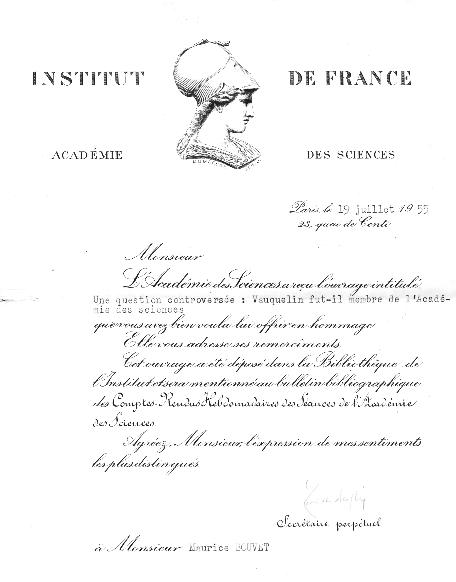 INSTITUT DE FRANCE
ACADÉMIE DES SCIENCES
Paris, le 19 juillet 1955
23, quai de Conti
Monsieur
L'Académie des Sciences a reçu l'ouvrage intitulé
Une question controversée : Vauquelin fut-il membre de l'Acadé-
mie des sciences
que vous avez bien voulu lui offrir en hommage
Elle vous adresse ses remerciments.
Cet ouvrage a été déposé dans la Bibliothèque de
l'Institut et sera mentionné au bulletin bibliographique
des Comptes-Rendus Hebdomadaires des Séances de l'Académie
des Sciences
Agréez, Monsieur, l'expression de mes sentiments
les plus distingués
Secrétaire perpétuel
à Monsieur Maurice BOUVET